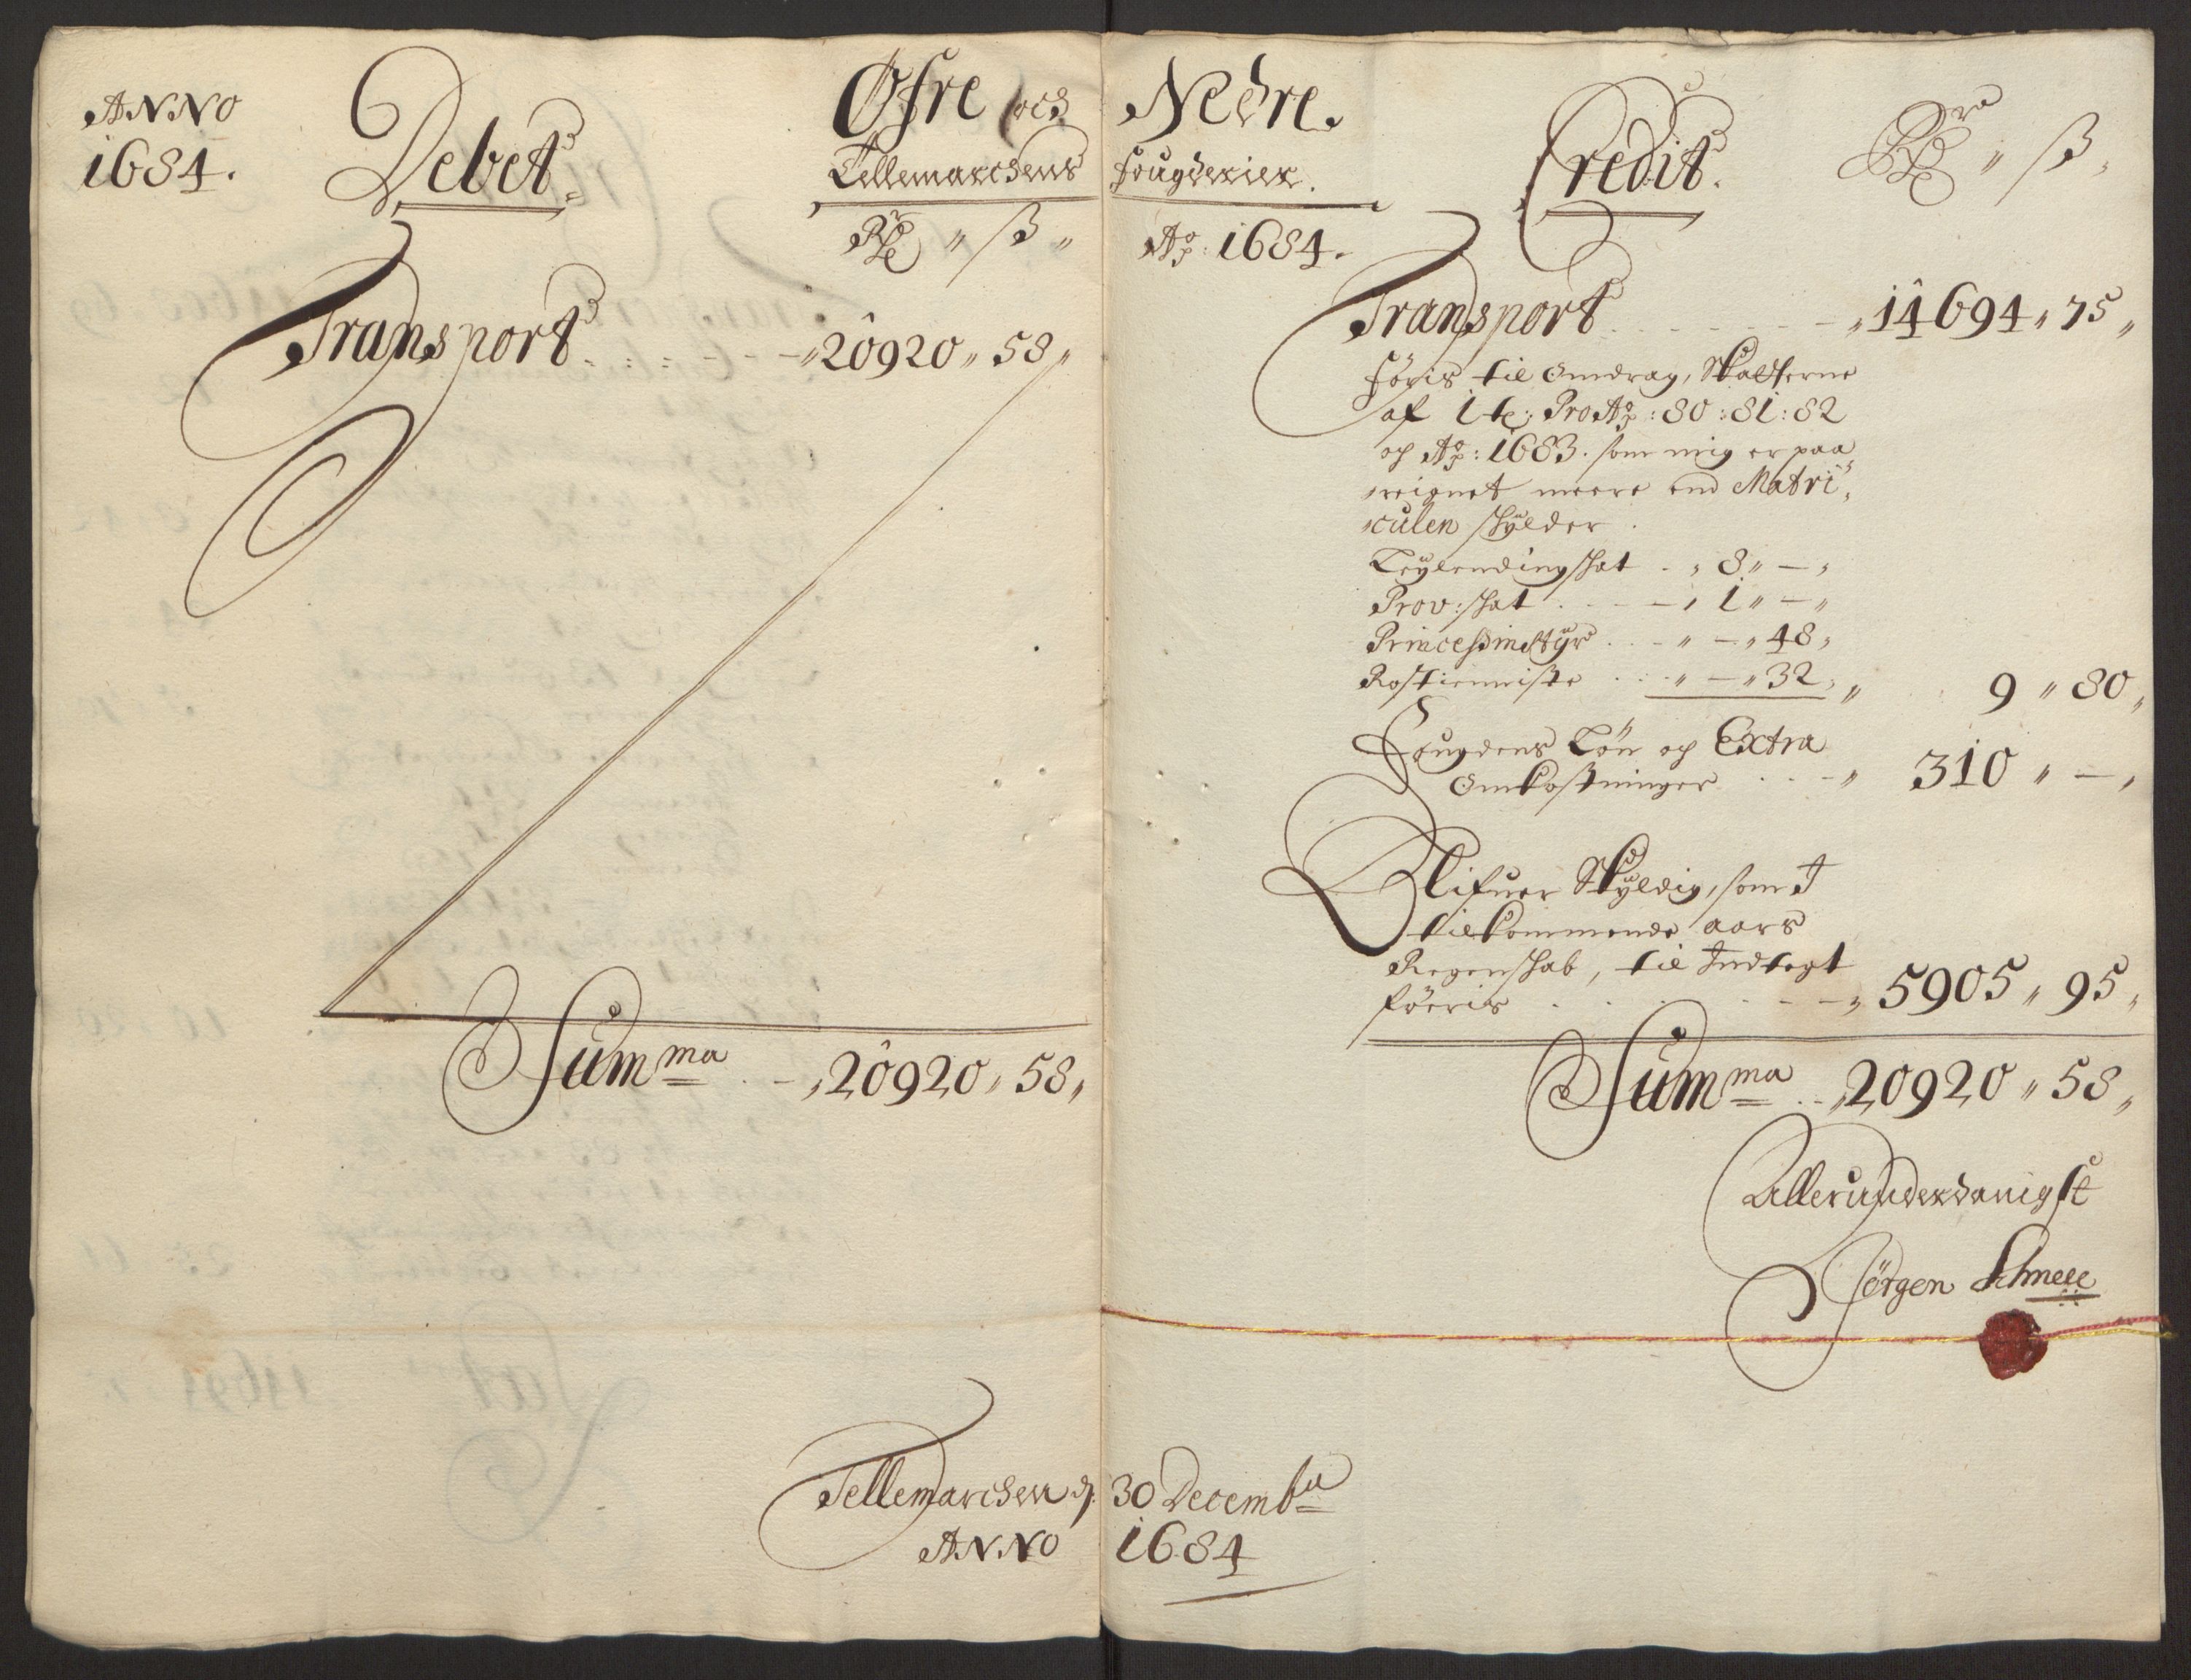 ANNO
1684.
Debet.
Øfre och Nedre.
Tellemarchens fougderier.
Rdr " ß "
Ao: 1684.
Transport . . . . " 20920 " 58 "
Summma . . " 20920 " 58 "
Credit.
Rdr " ß "
Transport . . . . " 14694 " 75 "
föris til Omdrag, Skatterne
af 1 te: Pro Ao: 80: 81: 82
og Ao: 1683. som mig er paa
reignet meere end Matri
culen skylder.
Leylendingschat . " 8 " — "
Prov: schat . . . — " 1 " — "
Princessinstÿr . . " — " 48 "
Rostienniste . . " — " 32 " " 9 " 80 "
Fougdens Løn og Extra
Omkostninger . . . " 310 " — "
Blifuer Skÿldig, som I
tilkommende aars
Regenschab, til Indtegt
föeris . . . . . " 5905 " 95 "
Summma . . " 20920 " 58 "
Allerunderdanigst
Jörgen Schnell
Tellemarchen d: 30 Decembr
ANNO 1684